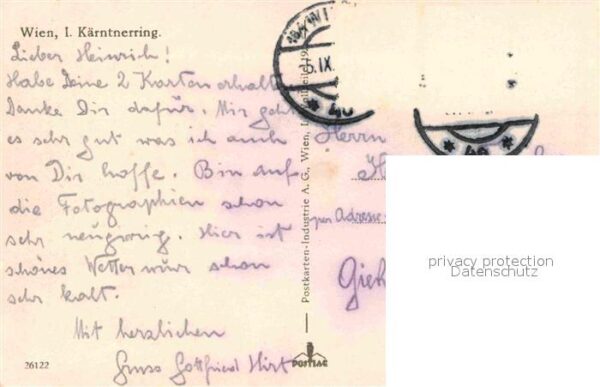 Wien, I. Kärntnerring.
Lieber Heinrich!
Habe Deine 2 Karten erhalt
Danke Dir dafür. Mir geht
es sehr gut was ich auch
von Dir hoffe. Bin auf
die Fotographien schon
sehr neugirig. Hier ist
schönes Wetter nur schon
sehr kalt.
Mit herzlichen
Gruss Gottfried Hirt
26122
Postkarten-Industrie A. G., Wien,
POSTIAG
WI
5.IX.
* 40
* 40 *
Herrn
per Adresse
Gieh
privacy protection
Datenschutz